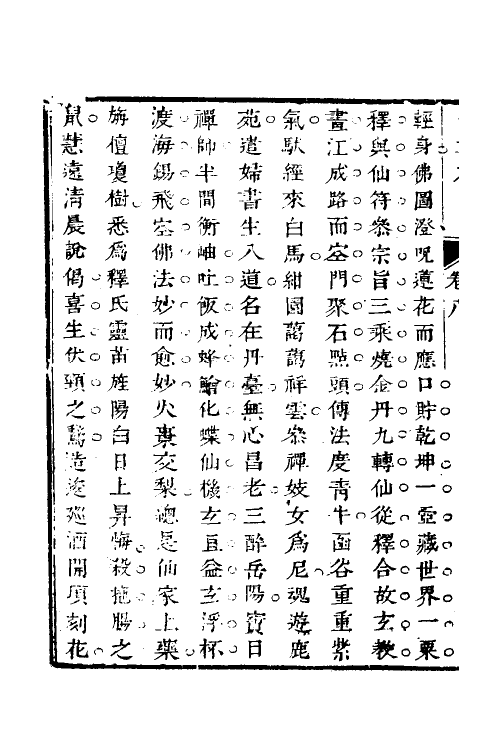 卷八
輕身佛圖澄呪蓮花而應口貯乾坤一壺藏世界一粟
釋與仙符叅宗旨三乘燒金丹九轉仙從釋合故玄教
畫江成路而空門聚石點頭傳法度靑牛函谷重重紫
氣馱經來白馬紺園藹藹祥雲叅禪妓女爲尼魂遊鹿
苑遣婦書生入道名在丹臺無心昌老三醉岳陽賣日
禪師半間衡岫吐飯成蜂鱠化蝶仙機玄且益玄浮杯
渡海錫飛空佛法妙而愈妙火棗交梨總是仙家上藥
旃檀瓊樹悉爲釋氏靈苗旌陽白日上昇悔殺拖腸之
鼠慧遠清晨說偈喜生伏頸之鵞造逡廵酒開頃刻花